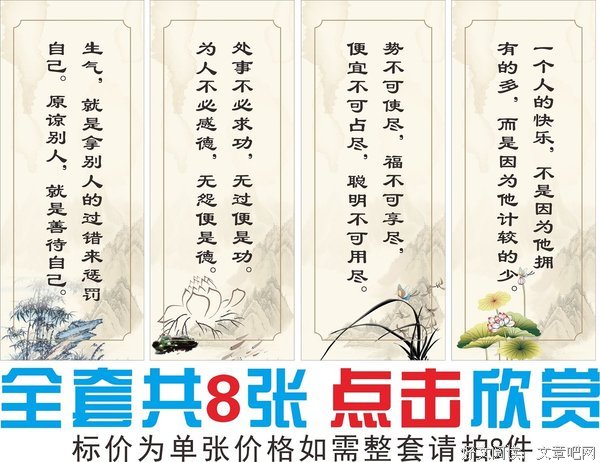 生气，就是拿别人的过错来惩罚
自己。原谅别人，就是善待自己。
处事不必求功，无过便是功。
为人不必感德，无怨便是德。
势不可使尽，福不可享尽，
便宜不可占尽，聪明不可用尽。
一个人的快乐，不是因为他拥
有的多，而是因为他计较的少。
全套共8张 点击欣赏
标价为单张价格如需整套请拍8件
文章吧网